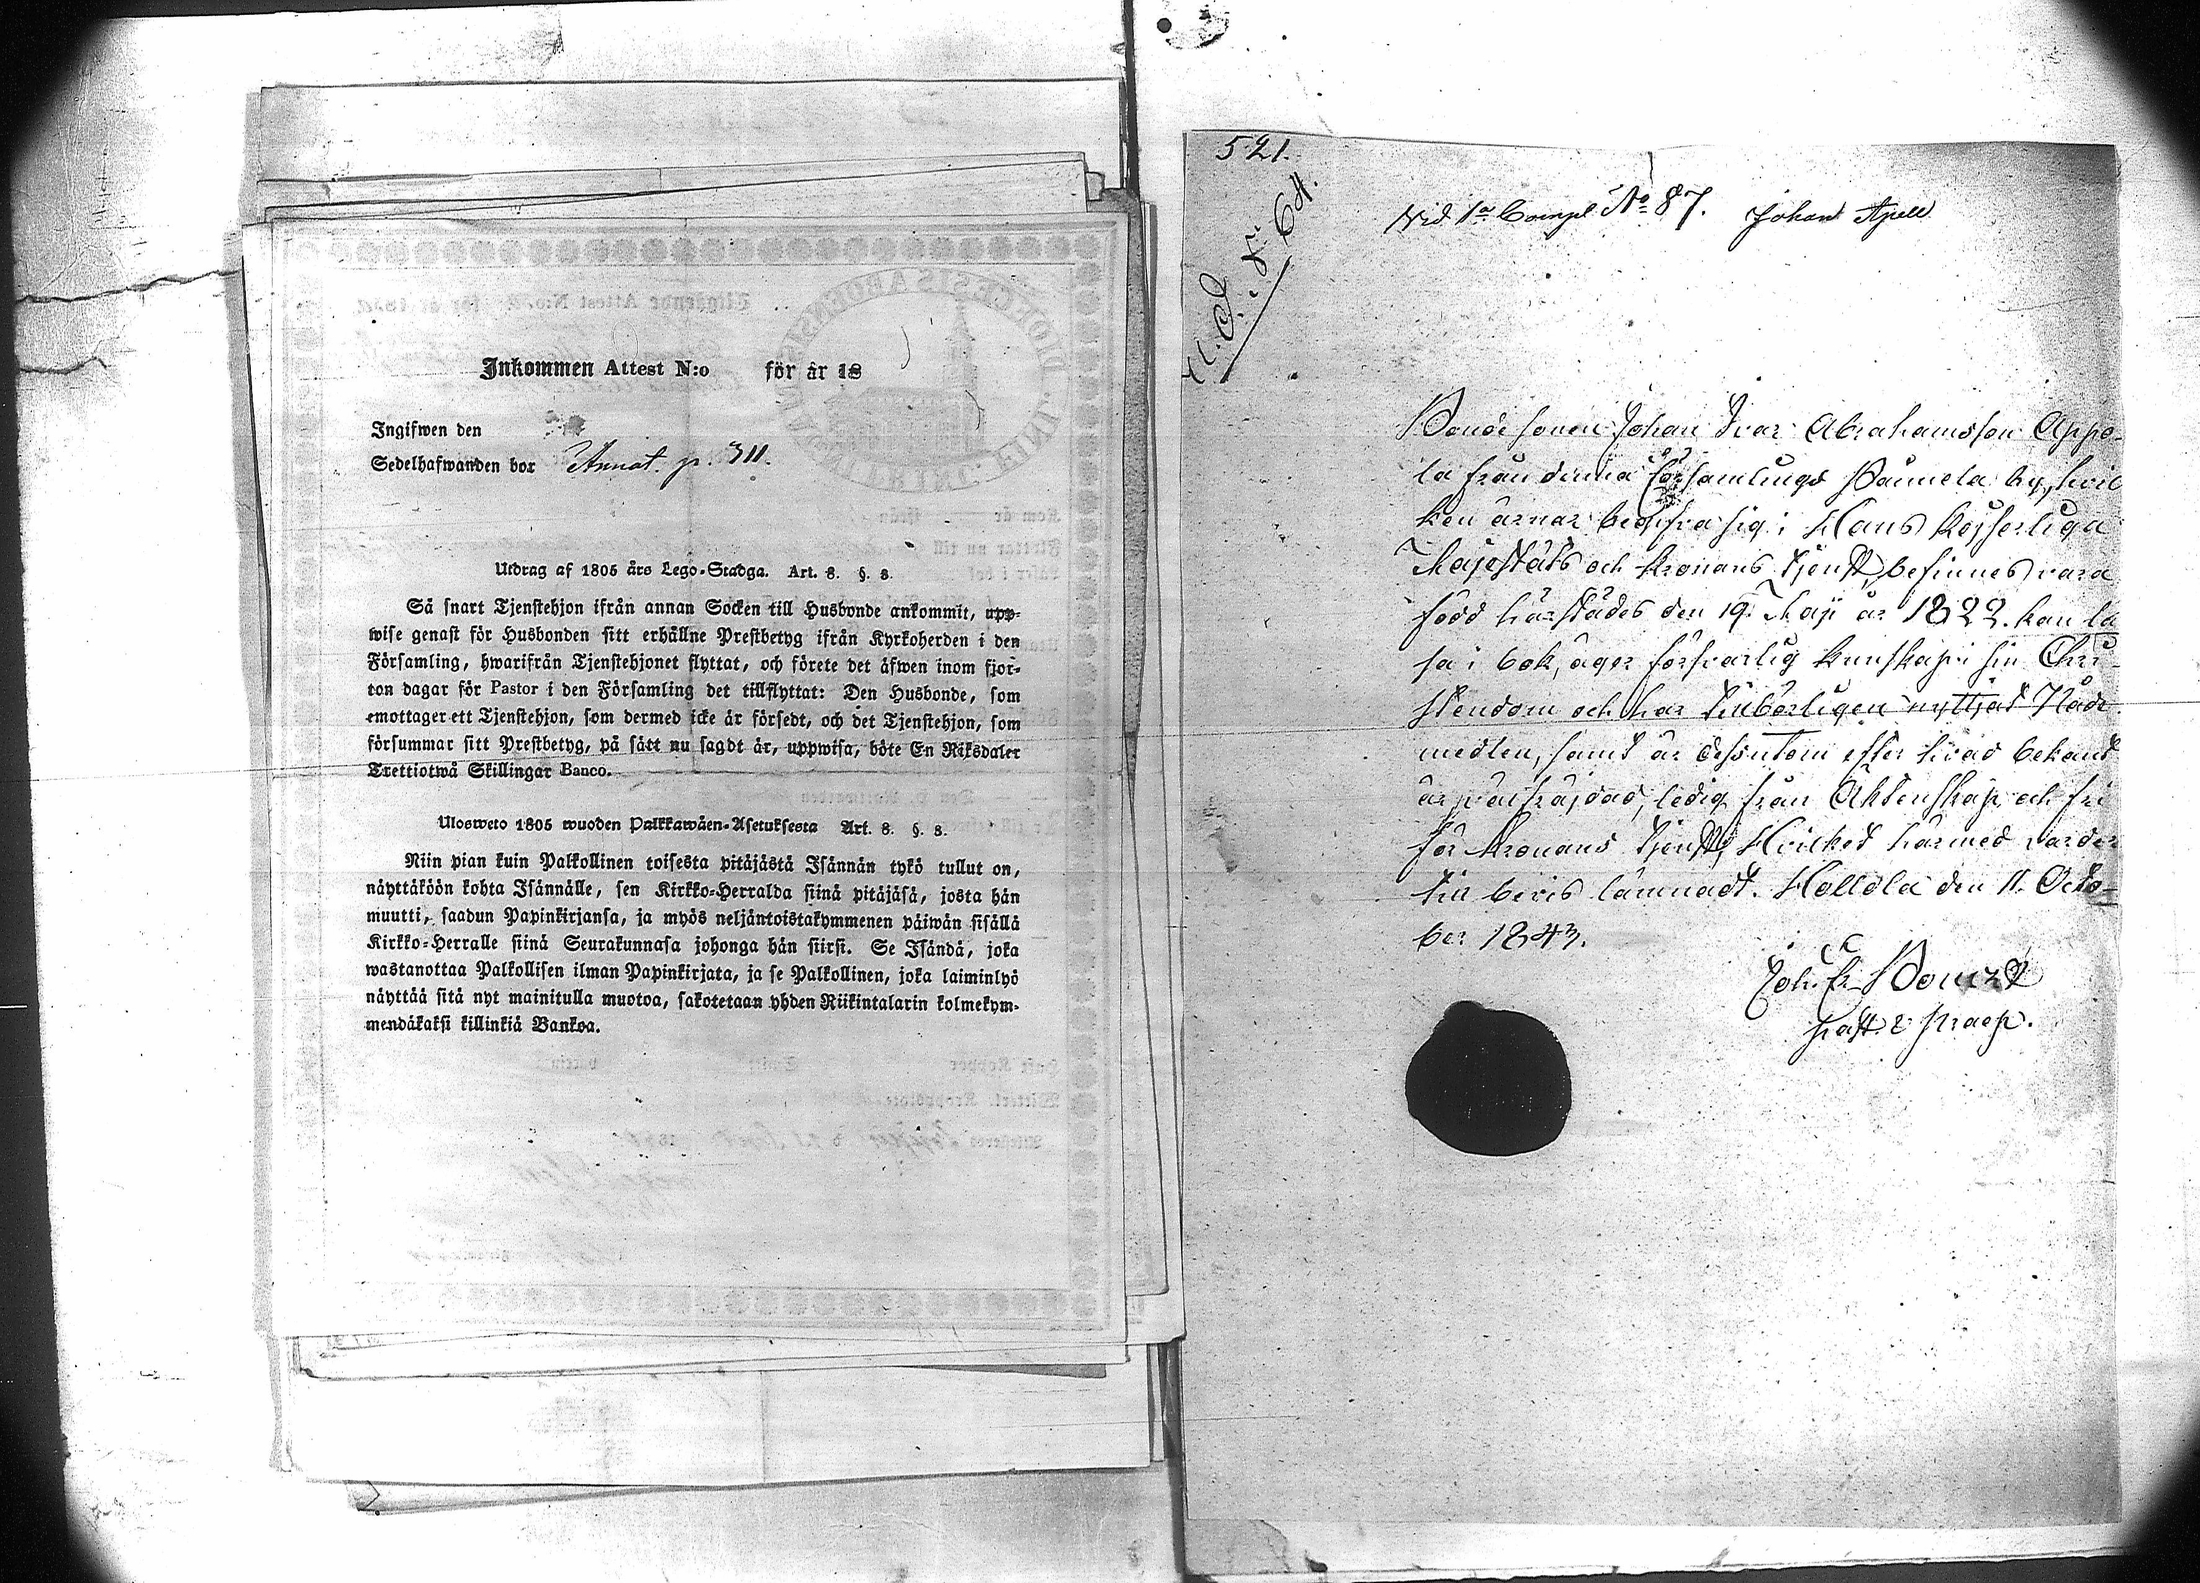 Inkommen Attest N:o för år 18
Ingifwen den
Sedelhafwanden bor Annot. p. 311.
Utdrag af 1805 års Lego-Stadga. Art. 8. §. 8.
Så snart Tjenstehjon ifrån annan Socken till Husbonde ankommit, upp-
wise genast för Husbonden sitt erhållne Prestbetyg ifrån Kyrkoherden i den
Församling, hwarifrån Tjenstehjonet flyttat, och förete det äfwen inom fjor-
ton dagar för Pastor i den Församling det tillflyttat: Den Husbonde, som
emottager ett Tjenstehjon, som dermed icke är försedt, och det Tjenstehjon, som
försummar sitt Prestbetyg, på sätt nu sagdt är, uppwisa, böte En Riksdaler
Trettiotwå Skillingar Banco.
Ulosweto 1805 wuoden Palkkawäen-Asetuksesta Art. 8. §. 8.
Niin pian kuin Palkollinen toisesta pitäjästä Isännän tykö tullut on,
näyttäköön kohta Isännälle, sen Kirkko-Herralda siinä pitäjäsä, josta hän
muutti, saadun Papinkirjansa, ja myös neljäntoistakymmenen päiwän sisällä
Kirkko-Herralle siinä Seurakunnasa johonga hän siirsi. Se Isändä, joka
wastanottaa Palkollisen ilman Papinkirjata, ja se Palkollinen, joka laiminlyö
näyttää sitä nyt mainitulla muotoa, sakotetaan yhden Riikintalarin kolmekym-
mendäkaksi killinkiä Bankoa.
521.
Vid 1a Compl No 87. Johan Apell
No 64.
Bondesonen Johan Ivar Abrahamsson Appo-
la från denna Församlings Paimela by, hvil
ken ärnar begifva sig i Hans Kejserliga
Majestäts och Kronans tjenst, befinnes vara
född härstädes den 19 Maji år 1822. kan lä
sa i bok, äger försvarlig kunskap i sin Chri-
stendom och har tillbörligen nyttjat Nåde
medlen, samt är dessutom efter hvad bekant
är välfräjdad, ledig från Äktenskap och fri
för Kronans tjenst; Hvilket härmed varder
till bevis lämnadt. Hollola den 11. Octo-
ber 1843.
Joh. Fr.
past. & praep.